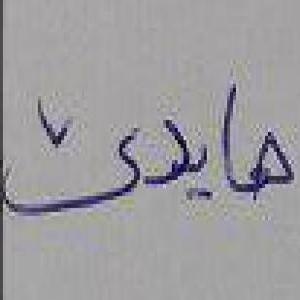 هایدێ